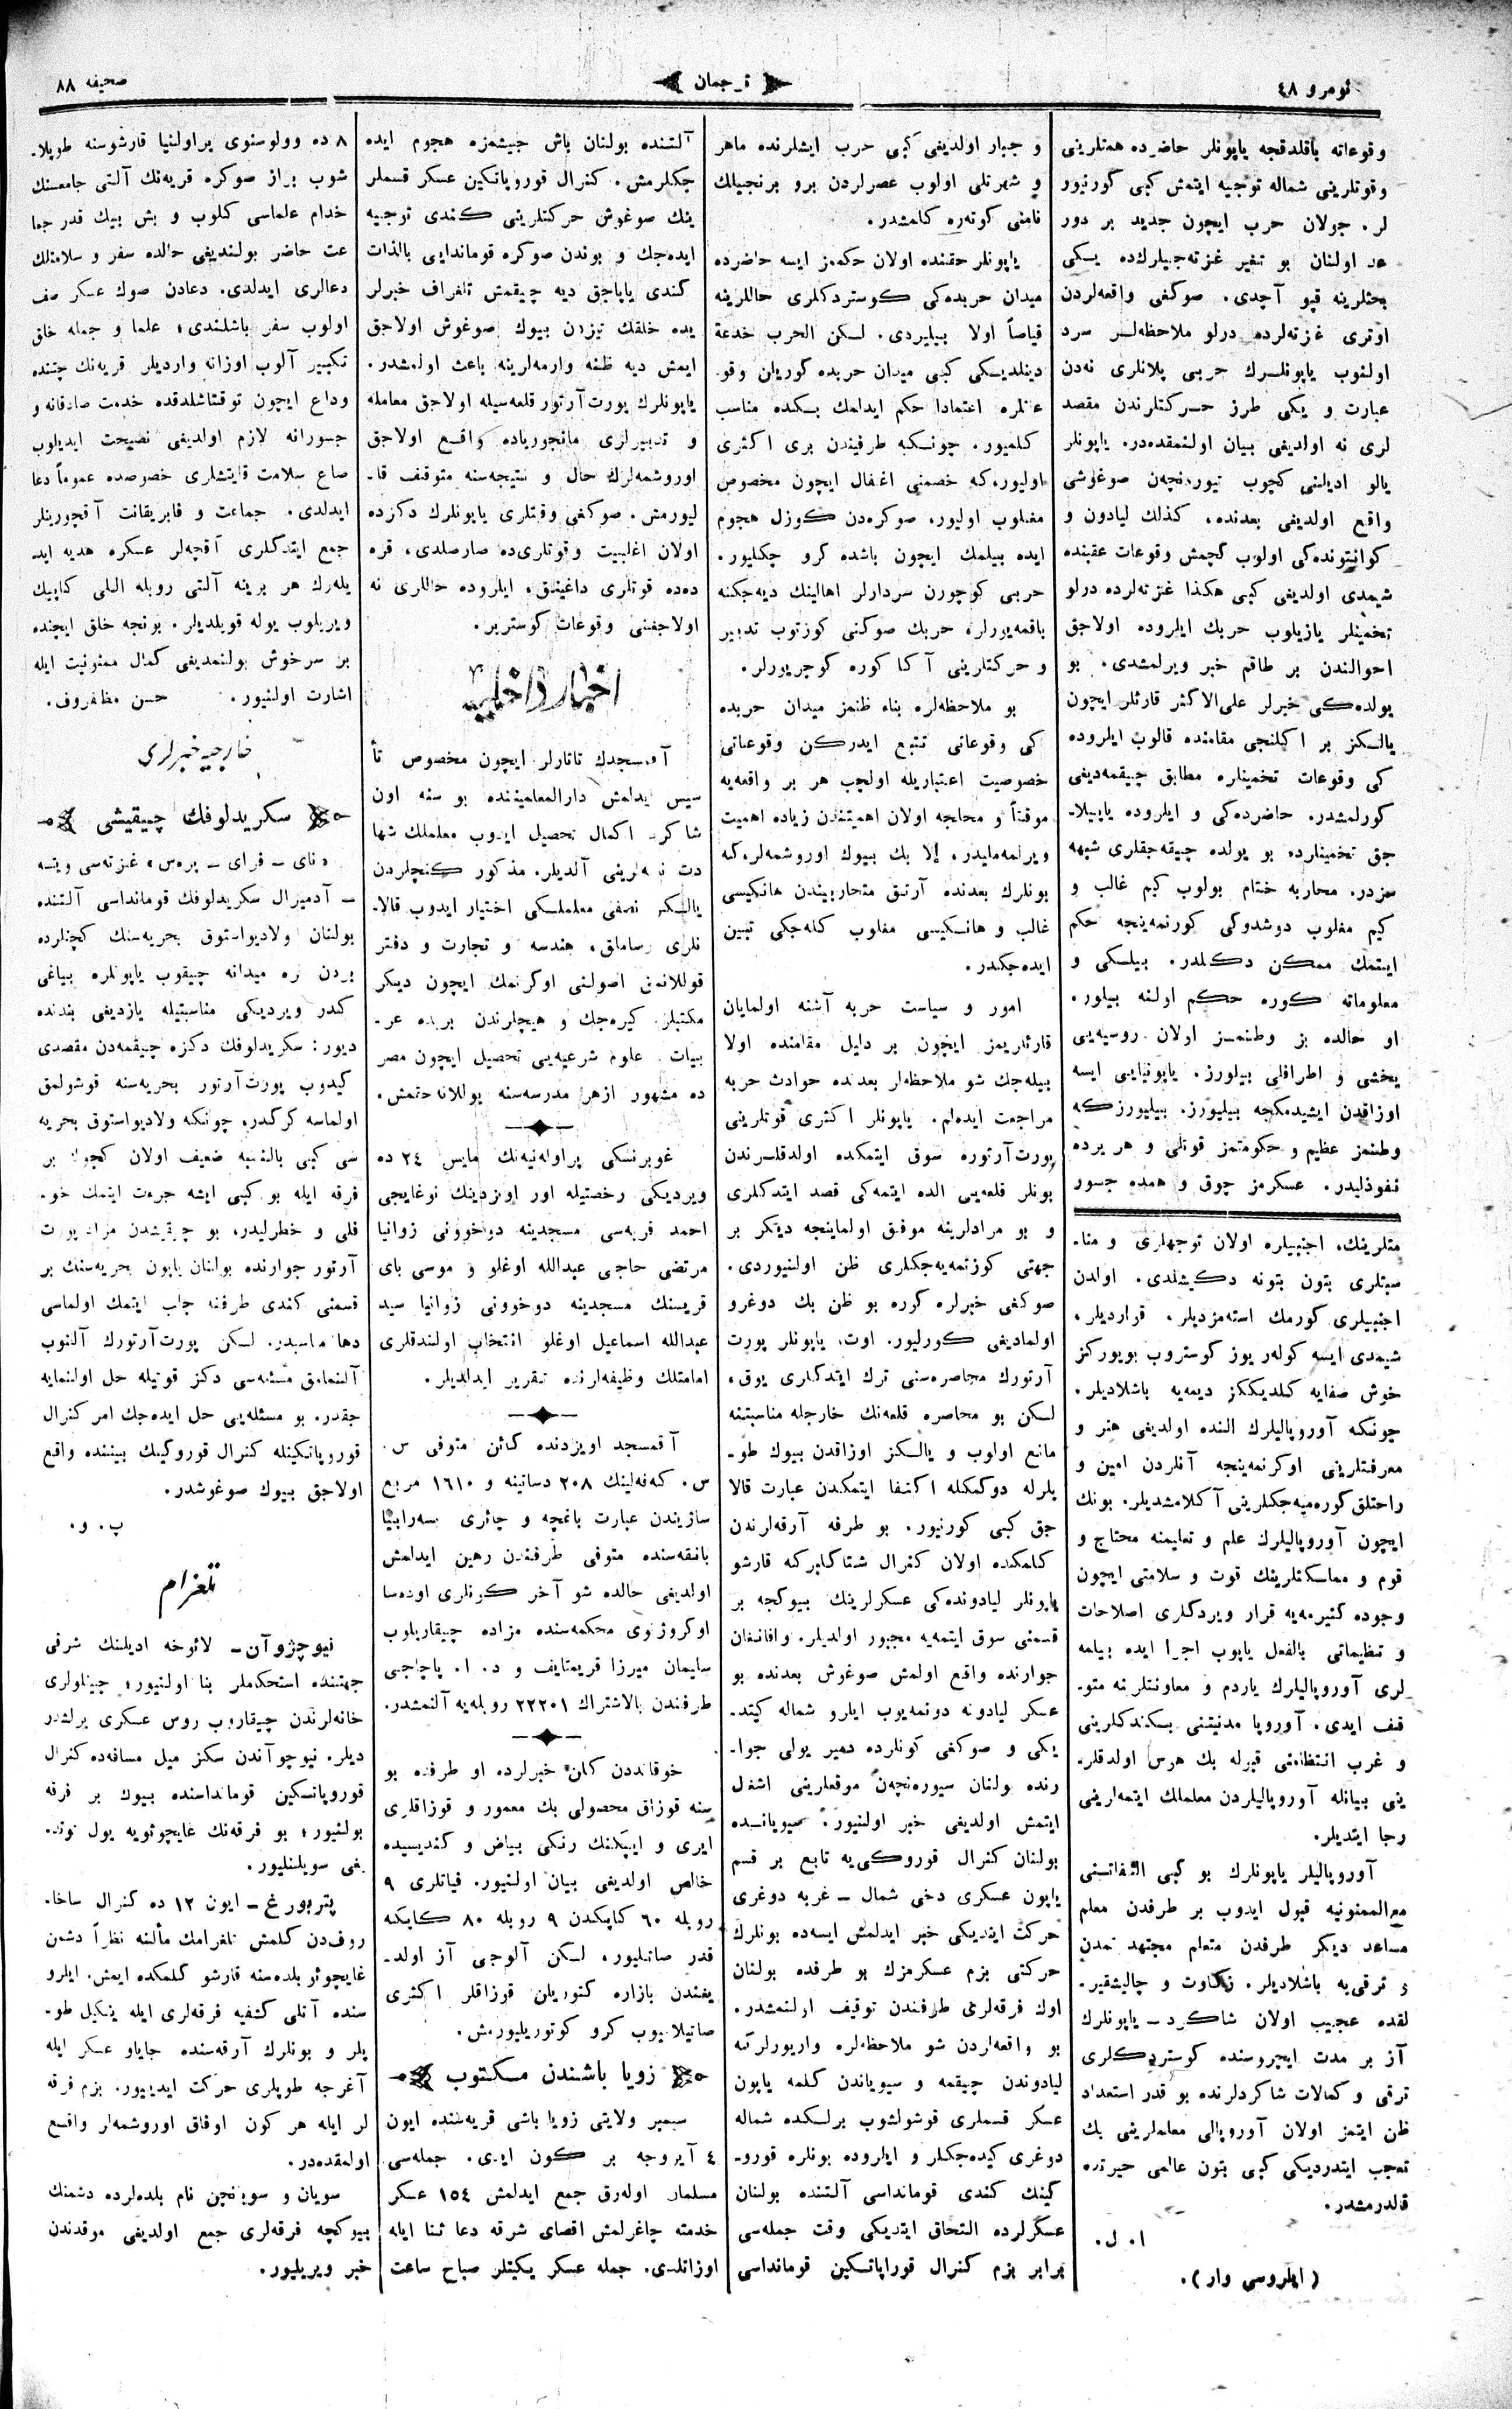 نومرو ٤٨
ترجمان
صحیفه ٨٨
وقوعاته باقلدقجه یاپونلر حاضرده همتلرینی
وقوتلرینی شماله توجیه ایتمش کبی کورنیور
لر. جولان حرب ایچون جدید بر دور
عد اولنان بو تغیر غزته‌جیلرك‌ده یسکی
بحثلرینه قپو آچدی. صوکغی واقعه‌لردن
اوتری غزته‌لرده درلو ملاحظه‌لر سرد
اولنوب یاپونلرك حربی پلانلری نه‌دن
عبارت و یکی طرز حرکتلرندن مقصد
لری نه اولدیغی بیان اولنمقده‌در. یاپونلر
یالو ادیلنی کچوب تیورنچه‌ن صوغوشی
واقع اولدیغی بعدنده، کذلك لیادون و
کوانتونده‌کی اولوب کچمش وقوعات عقبنده
شیمدی اولدیغی کبی هکذا غزته‌لرده درلو
تخمینلر یازیلوب حربك ایلروده اولاجق
احوالندن بر طاقم خبر ویرلمشدی. بو
یولده‌کی خبرلر علی‌الاکثر قارئلر ایچون
یالکز بر اکلنجی مقامنده قالوب ایلروده
کی وقوعات تخمینلره مطابق چیقمه‌دیغی
کورلمشدر. حاضرده‌کی و ایلروده یاپیلا-
جق تخمینلرده بو یولده چیقه‌جقلری شبهه
سزدر. محاربه ختام بولوب کیم غالب و
کیم مغلوب دوشدوکی کورنمه‌ینجه حکم
ایتمك ممکن دکلدر. بیلسکی و
معلوماته کوره حکم اولنه بیلور.
او حالده بز وطنمز اولان روسیه‌یی
یخشی و اطرافلی بیلورز. یاپونیایی ایسه
اوزاقدن ایشیدمکجه بیلیورز. بیلیورزکه
وطنمز عظیم و حکومتمز قوتلی و هر یرده
نفوذلیدر. عسکرمز چوق و همده جسور
متلرینك، اجنبیلره اولان توجهلری و منا-
سبتلری بتون بتونه دکیشلدی. اولدن
اجنبیلری کورمك استه‌مزدیلر. قواردیلر.
شیمدی ایسه کولر یوز کوستروب بویورکز
خوش صفایه کلدیککز دیمه‌یه باشلادیلر.
چونکه آوروپالیلرك النده اولدیغی هنر و
معرفتلرینی اوکرنمه‌ینجه آنلردن امین و
راحتلق کوره‌میه‌جکلرینی آکلامشدیلر. بونك
ایچون آوروپالیلرك علم و تعلیمنه محتاج و
قوم و مملکتلرینك قوت و سلامتی ایچون
وجوده کتیرمه‌یه قرار ویردکلری اصلاحات
و تنظیماتی بالفعل یاپوب اجرا ایده بیلمه
لری آوروپالیلرك یاردم و معاونتلرنه متو-
قف ایدی. آوروپا مدنیتنی بکندکلرینی
و غرب انتظامنی قبوله بك هرس اولدقلر-
ینی بیانله آوروپالیلردن معلملك ایتمه‌لرینی
رجا ایتدیلر.
آوروپالیلر یاپونلرك بو کبی التفاتنی
مع‌الممنونیه قبول ایدوب بر طرفدن معلم
مساعد دیکر طرفدن متعلم مجتهد تمدن
و ترقی‌یه باشلادیلر. ذکاوت و چالیشقیر-
لقده عجیب اولان شاکرد - یاپونلرك
آز بر مدت ایچروسنده کوستردکلری
ترقی و کمالات شاکردلرنده بو قدر استعداد
ظن ایتمز اولان آوروپالی معلملرینی بك
تعجب ایتدردیکی کبی بتون عالمی حیرتده
قالدرمشدر.
ا. ل.
(ایلروسی وار).
و جبار اولدیغی کبی حرب ایشلرنده ماهر
و شهرتلی اولوب عصرلردن برو برنجیلك
نامنی کوته‌ره کلمشدر.
یاپونلر حقنده اولان حکممز ایسه حاضرده
میدان حربده‌کی کوستردکلری حاللرینه
قیاصاً اولا بیلیردی. لکن الحرب خدعة
دینلدیکی کبی میدان حربده کوریلن وقو-
عتلره اعتمادا حکم ایدلمك بکده مناسب
کلمیور. چونکه طرفیندن بری اکثری
اولیور، که خصمنی اغفال ایچون مخصوص
مغلوب اولیور، صوکره‌دن کوزل هجوم
ایده بیلمك ایچون باشده کرو چکلیور.
حربی کوچورن سردارلر اهالینك دیه‌جکنه
باقمه‌یورلر، حربك صوکنی کوزتوب تدبیر
و حرکتلرینی آکا کوره کوچریورلر.
بو ملاحظه‌لره بناء ظنمز میدان حربده
کی وقوعاتی تتبع ایدرکن وقوعاتی
خصوصیت اعتباریله اولچب هر بر واقعه‌یه
موقتاً و محاجه اولان اهمیتندن زیاده اهمیت
ویرلمه‌ملیدر، إلا بك بیوك اوروشمه‌لر، که
بونلرك بعدنده آرتق متحاربیندن هانکیسی
غالب و هانکیسی مغلوب کله‌جکی تبیین
ایده‌جکدر.
امور و سیاست حربه آشنه اولمایان
قارئلریمز ایچون بر دلیل مقامنده اولا
بیله‌جك شو ملاحظه‌لر بعدنده حوادث حربه
مراجعت ایده‌لم. یاپونلر اکثری قوتلرینی
پورت‌آرتوره سوق ایتمکده اولدقلرندن
بونلر قلعه‌یی الده ایتمه‌کی قصد ایتدکلری
و بو مرادلرینه موفق اولماینجه دیکر بر
جهتی کوزتمه‌یه‌جکلری ظن اولنیوردی.
صوکغی خبرلره کوره بو ظن بك دوغرو
اولمادیغی کورلیور. اوت، یاپونلر پورت
آرتورك محاصره‌سنی ترك ایتدکلری یوق،
لکن بو محاصره قلعه‌نك خارجله مناسبتنه
مانع اولوب و یالکز اوزاقدن بیوك طو-
پلرله دوکمکله اکتفا ایتمکدن عبارت قالا
جق کبی کورنیور. بو طرفه آرقه‌لرندن
کلمکده اولان کنرال شتاکلبرکه قارشو
یاپونلر لیادونده‌کی عسکرلرینك بیوکجه بر
قسمنی سوق ایتمه‌یه مجبور اولدیلر. وافانغان
جوارنده واقع اولمش صوغوش بعدنده بو
عسکر لیادونه دونمه‌یوب ایلرو شماله کیتد-
یکی و صوکغی کونلرده دمیر یولی جوا-
رنده بولنان سیوره‌نچه‌ن موقعلرینی اشغال
ایتمش اولدیغی خبر اولنیور. سیویانده
بولنان کنرال قوروکی‌یه تابع بر قسم
یاپون عسکری دخی شمال - غربه دوغری
حرکت ایتدیکی خبر ایدلمش ایسه‌ده بونلرك
حرکتی بزم عسکرمزك بو طرفده بولنان
اوك فرقه‌لری طرفندن توقیف اولنمشدر.
بو واقعه‌لردن شو ملاحظه‌لره واریورلرکه
لیادوندن چیقمه و سیویاندن کلمه یاپون
عسکر قسملری قوشولشوب برلکده شماله
دوغری کیده‌جکلر و ایلروده بونلره قورو-
کینك کندی قومانداسی آلتنده بولنان
عسکرلرده التحاق ایتدیکی وقت جمله‌سی
برابر بزم کنرال قوراپاتکین قومانداسی
آلتنده بولنان باش جیشمزه هجوم ایده
جکلرمش. کنرال قوروپاتکین عسکر قسملر
ینك صوغوش حرکتلرینی کندی توجیه
ایده‌جك و بوندن صوکره قوماندایی بالذات
کندی یاپاجق دیه چیقمش تلغراف خبرلر
یده خلقك تیزدن بیوك صوغوش اولاجق
ایمش دیه ظنه وارمه‌لرینه باعث اولمشدر.
یاپونلرك پورت‌آرتور قلعه‌سیله اولاجق معامله
و تدبیرلری مانجوریاده واقع اولاجق
اوروشمه‌لرك حال و نتیجه‌سنه متوقف قا-
لیورمش. صوکغی وقتلری یاپونلرك دکزده
اولان اغلبیت و قوتلری‌ده صارصلدی، قره
ده‌ده قوتلری داغینق، ایلروده حاللری نه
اولاجغنی وقوعات کوستریر.
اخبار داخلیه
آقمسجدك تاتارلر ایچون مخصوص تأ
سیس ایدلمش دارالمعلمیننده بو سنه اون
شاکرد اکمال تحصیل ایدوب معلملك شها
دت نامه‌لرینی آلدیلر. مذکور کنچلردن
یالکز نصفی معلملکی اختیار ایدوب قالا-
نلری رساملق، هندسه و تجارت و دفتر
قوللانمق اصولنی اوکرنمك ایچون دیکر
مکتبلره کیره‌جك و هیچلرندن بریده عر-
بیات علوم شرعیه‌یی تحصیل ایچون مصر
ده مشهور ازهر مدرسه‌سنه یوللانه‌جقمش.
غوبرنسکی پراوله‌نیه‌نك مایس ٢٤ ده
ویردیکی رخصتیله اور اوئزدینك نوغایجی
احمد قریه‌سی مسجدینه دوخوونی زوانیا
مرتضی حاجی عبدالله اوغلو و موسی بای
قریسنك مسجدینه دوخوونی زوانیا سید
عبدالله اسماعیل اوغلو انتخاب اولندقلری
امامتلك وظیفه‌لرنده تقریر ایدلدیلر.
آقمسجد اویزدنده کائن متوفی س.
س. که‌فه‌لینك ٢٠٨ دساتینه و ١٦١٠ مربع
ساژیندن عبارت باغچه و چائری بسه‌رابیا
بانقه‌سنده متوفی طرفندن رهین ایدلمش
اولدیغی حالده شو آخر کونلری اوده‌سا
اوکروژنوی محکمه‌سنده مزاده چیقاریلوب
سلیمان میرزا قریمتایف و د. ا. پاچاجی
طرفندن بالاشتراك ٢٢٢٠١ روبله‌یه آلنمشدر.
خوقانددن کلن خبرلرده او طرفده بو
سنه قوزاق محصولی بك معمور و قوزاقلری
ایری و ایپکنك رنکی بیاض و کندیسیده
خالص اولدیغی بیان اولنیور. فیاتلری ٩
روبله ٦٠ کاپکدن ٩ روبله ٨٠ کاپکه
قدر صاتیلیور، لکن آلوجی آز اولد-
یغندن بازاره کتوریلن قوزاقلر اکثری
صاتیلامیوب کرو کوتوریلیورمش.
زویا باشندن مکتوب
سیمبر ولایتی زویا باشی قریه‌سنده ایون
٤ آیروجه بر کون ایدی. جمله‌سی
مسلمان اوله‌رق جمع ایدلمش ١٥٤ عسکر
خدمته چاغرلمش اقصای شرقه دعا ثنا ایله
اوزاتلدی. جمله عسکر یکیتلر صباح ساعت
٨ ده وولوسنوی پراولنیا قارشوسنه طوپلا-
شوب براز صوکره قریه‌نك آلتی جامعسنك
خدام علماسی کلوب و بش بیك قدر جما
عت حاضر بولندیغی حالده سفر و سلامتلك
دعالری ایدلدی. دعادن صوك عسکر صف
اولوب سفر باشلندی؛ علما و جمله خلق
تکبیر آلوب اوزانه واردیلر قریه‌نك چتنده
وداع ایچون توقتاشلدقده خدمت صادقانه و
جسورانه لازم اولدیغی نصیحت ایدیلوب
صاغ سلامت قایتشلری خصوصده عموماً دعا
ایدلدی. جماعت و فابریقانت آقچورینلر
جمع ایتدکلری آقچه‌لر عسکره هدیه اید
یله‌رك هر برینه آلتی روبله اللی کاپیك
ویریلوب یوله قویلدیلر. بونجه خلق ایچنده
بر سرخوش بولنمدیغی کمال ممنونیت ایله
اشارت اولنیور. حسن مظفروف.
خارجیه خبرلری
سکریدلوفك چیقیشی
«نای - فرای - پره‌س» غزته‌سی ویتسه
- آدمیرال سکریدلوفك قومانداسی آلتنده
بولنان ولادیواستوق بحریه‌سنك کچنلرده
بردن بره میدانه چیقوب یاپونلره بیاغی
کدر ویردیکی مناسبتیله یازدیغی بندنده
دیور: سکریدلوفك دکزه چیقمه‌دن مقصدی
کیدوب پورت‌آرتور بحریه‌سنه قوشولمق
اولماسه کرکدر، چونکه ولادیواستوق بحریه
سی کبی بالنسبه ضعیف اولان کچوك بر
فرقه ایله بو کبی ایشه جرءت ایتمك خو-
فلی و خطرلیدر، بو چیقیشدن مراد پورت
آرتور جوارنده بولنان یاپون بحریه‌سنك بر
قسمنی کندی طرفنه جلب ایتمك اولماسی
دها مناسبدر. لکن پورت‌آرتورك آلنوب
آلنمامق مسئله‌سی دکز قوتیله حل اولنمایه
جقدر. بو مسئله‌یی حل ایده‌جك امر کنرال
قوروپاتکینله کنرال قوروکینك بیننده واقع
اولاجق بیوك صوغوشدر.
پ. و.
تلغرام
نیوچژوآن- لائوخه ادیلنك شرقی
جهتنده استحکملر بنا اولنیور؛ چینلولری
خانه‌لرندن چیقاروب روس عسکری یرلشدر
دیلر. نیوچوآندن سکز میل مسافه‌ده کنرال
قوروپاتکین قومانداسنده بیوك بر فرقه
بولنیور؛ بو فرقه‌نك غایچوئویه یول توتد-
یغی سویلنلیور.
پتربورغ- ایون ١٢ ده کنرال ساخا-
روف‌دن کلمش تلغرامك مألنه نظراً دشمن
غایچوئو بلده‌سنه قارشو کلمکده ایمش. ایلرو
سنده آتلی کشفیه فرقه‌لری ایله ینکیل طو-
پلر و بونلرك آرقه‌سنده جایاو عسکر ایله
آغرجه طوپلری حرکت ایدییور. بزم فرقه
لر ایله هر کون اوفاق اوروشمه‌لر واقع
اولمقده‌در.
سویان و سوینچن نام بلده‌لرده دشمنك
بیوکچه فرقه‌لری جمع اولدیغی موقدندن
خبر ویریلیور.